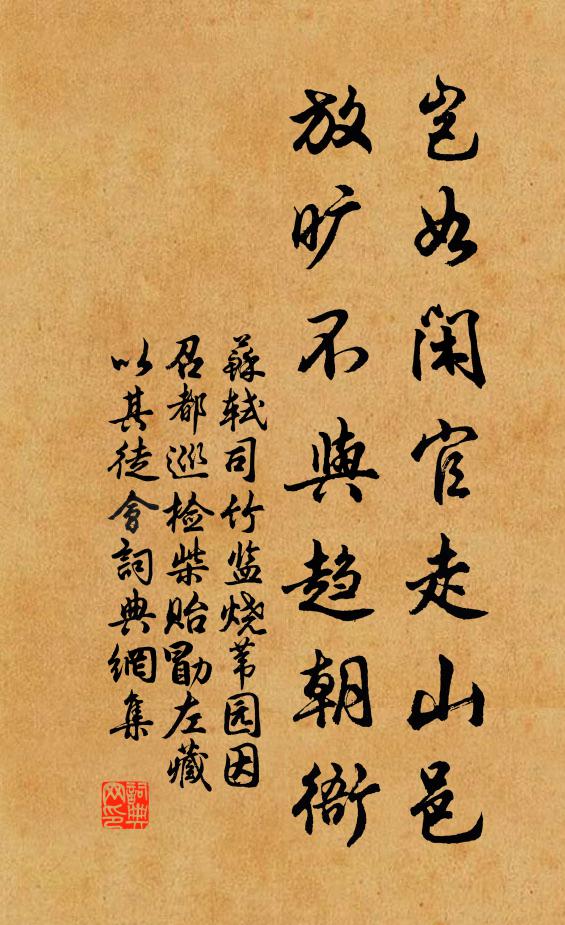 岂如闲官走山邑
放旷不與趋朝衙
蘇轼司竹监烧苇园因
召都巡检柴贻勖左藏
以其徒会詞典網集
詞典
网印